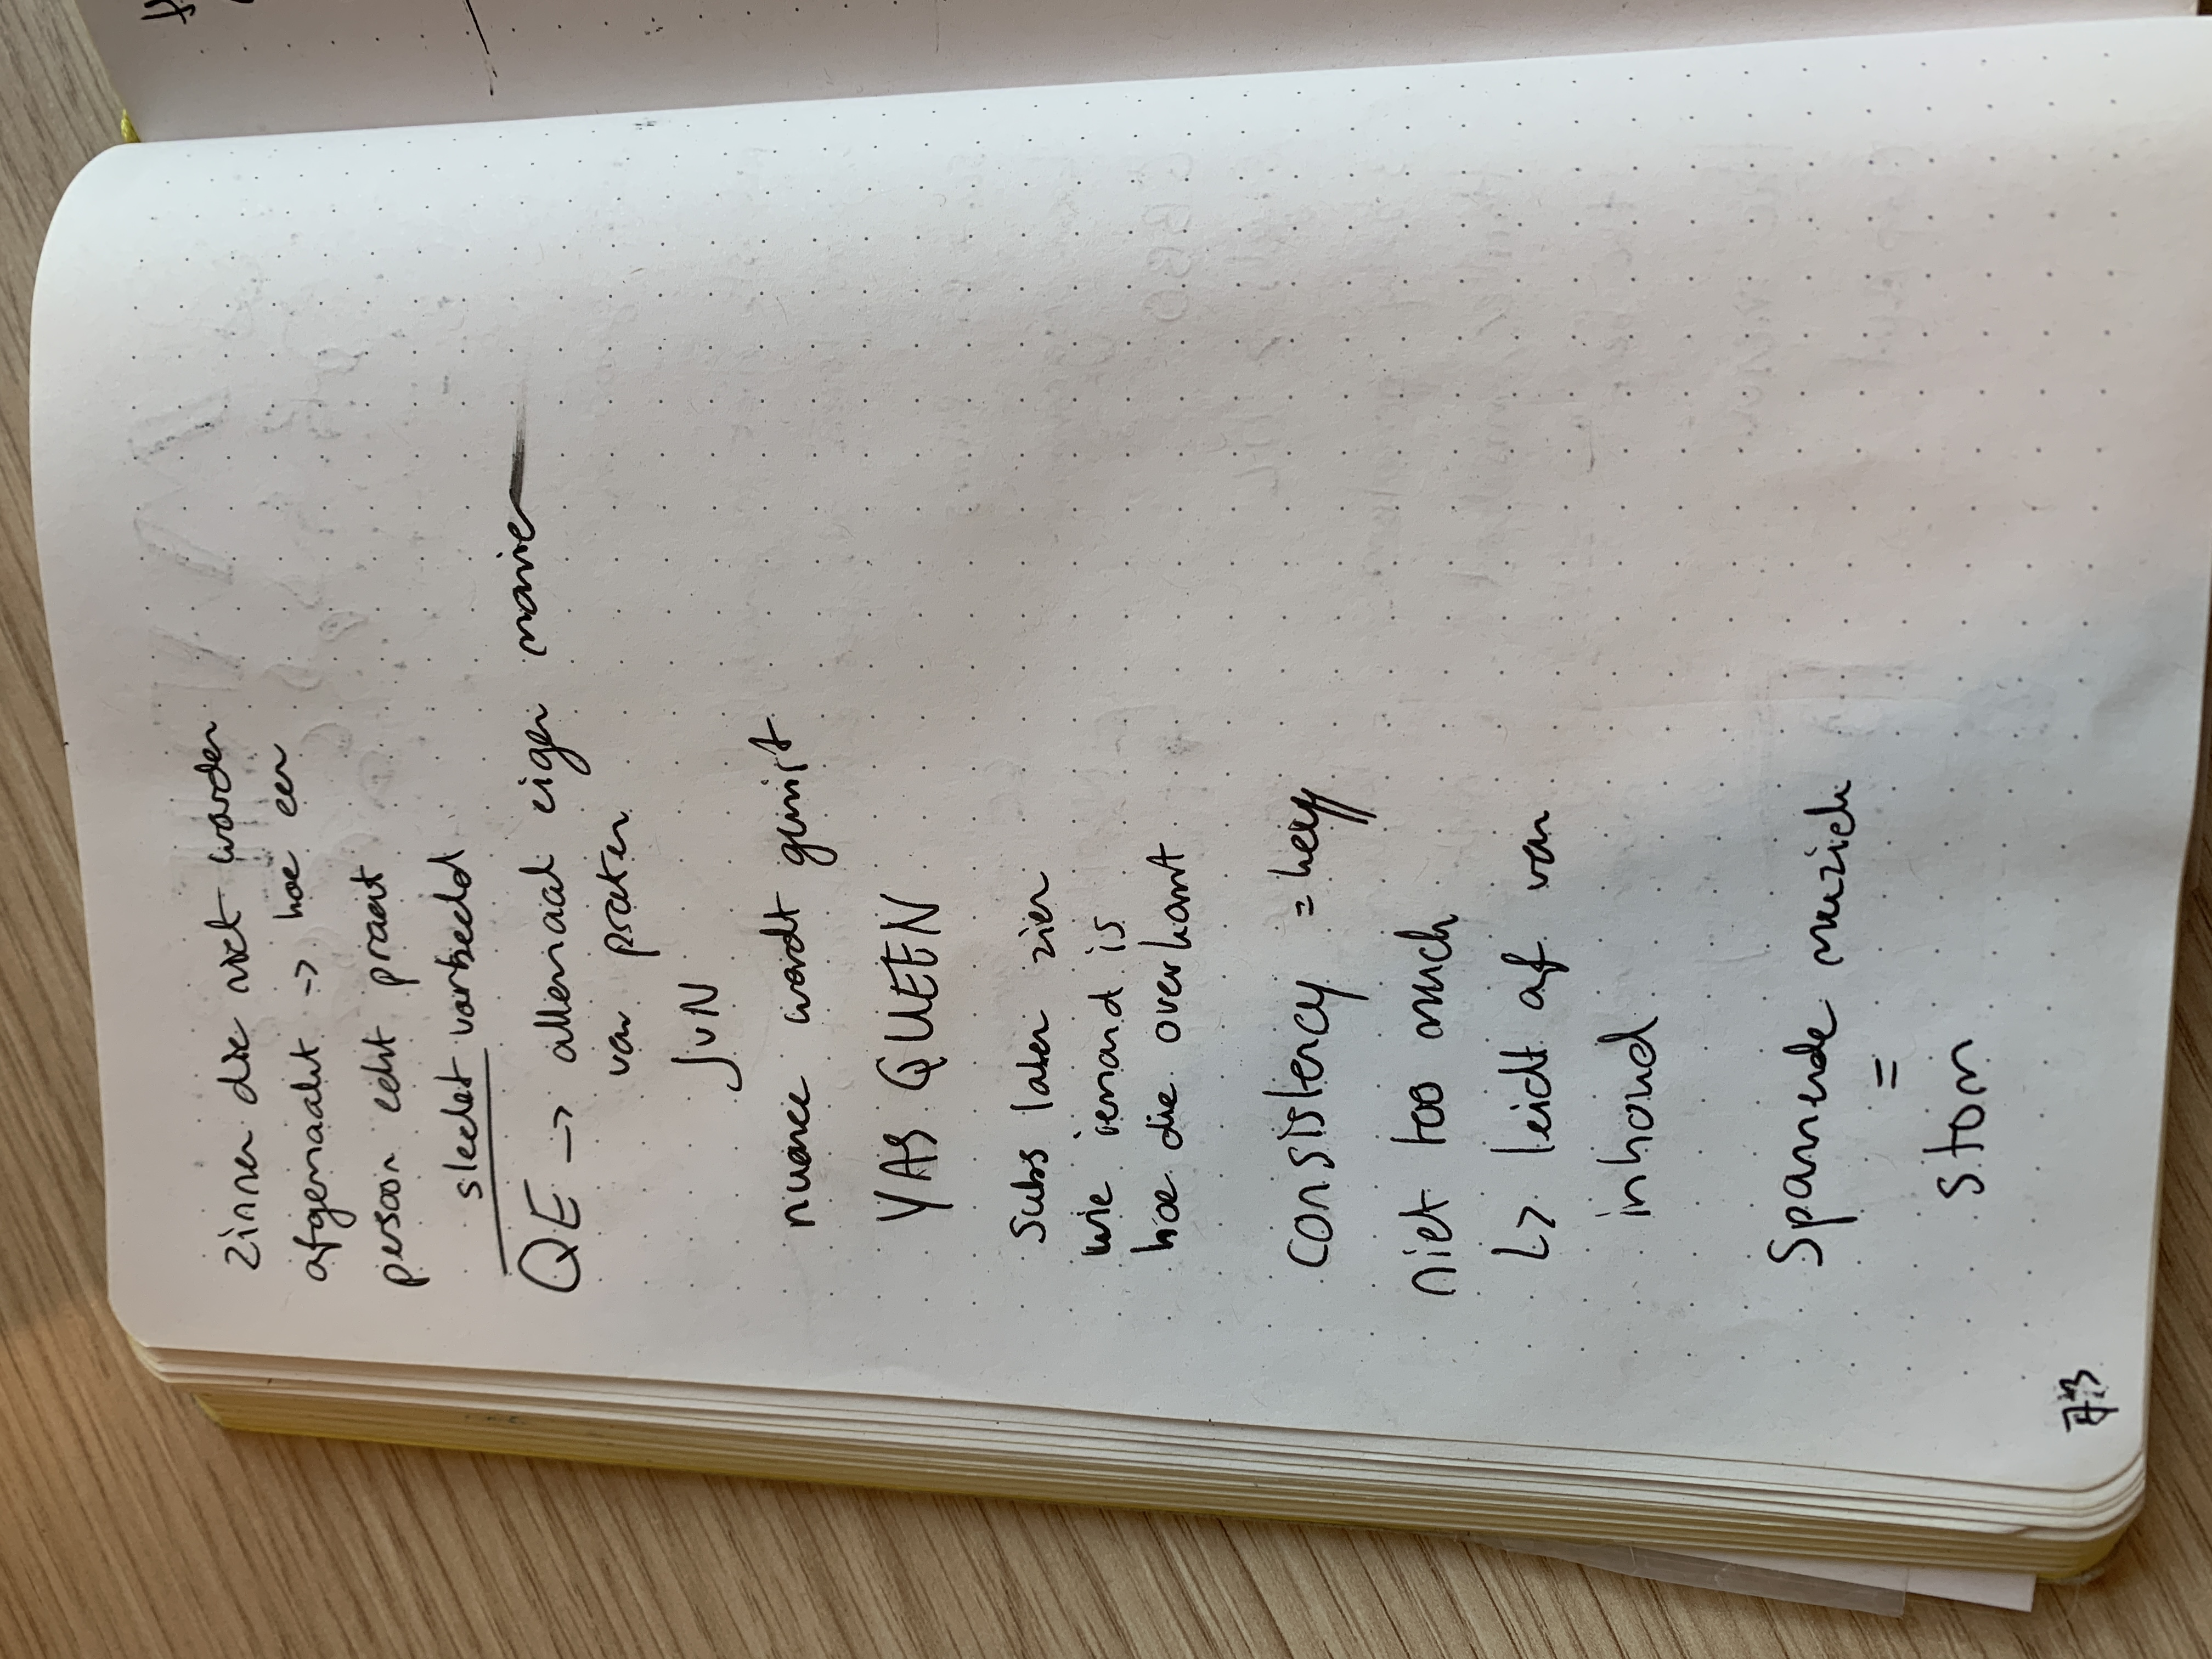 zinnen die niet worden
afgemaakt -> hoe een
persoon echt praat
slecht voorbeeld
QE -> allemaal eigen manier
van praten
JvN
nuance wordt gemist
YAS QUEEN
Subs laten zien
wie iemand is
hoe die overkomt
consistency = key
niet too much
↳ leidt af van
inhoud
Spannende muziek
=
stom
73